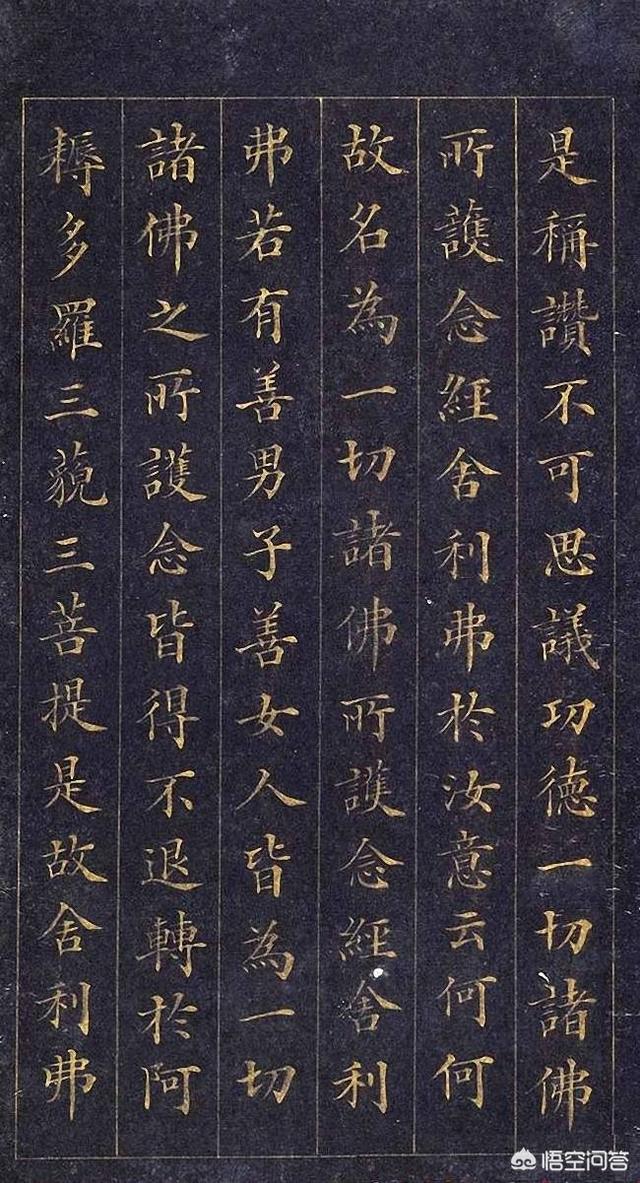 是稱讚不可思議功德一切諸佛
所護念經舍利弗於汝意云何何
故名為一切諸佛所護念經舍利
弗若有善男子善女人皆為一切
諸佛之所護念皆得不退轉於阿
耨多羅三藐三菩提是故舍利弗
悟空问答